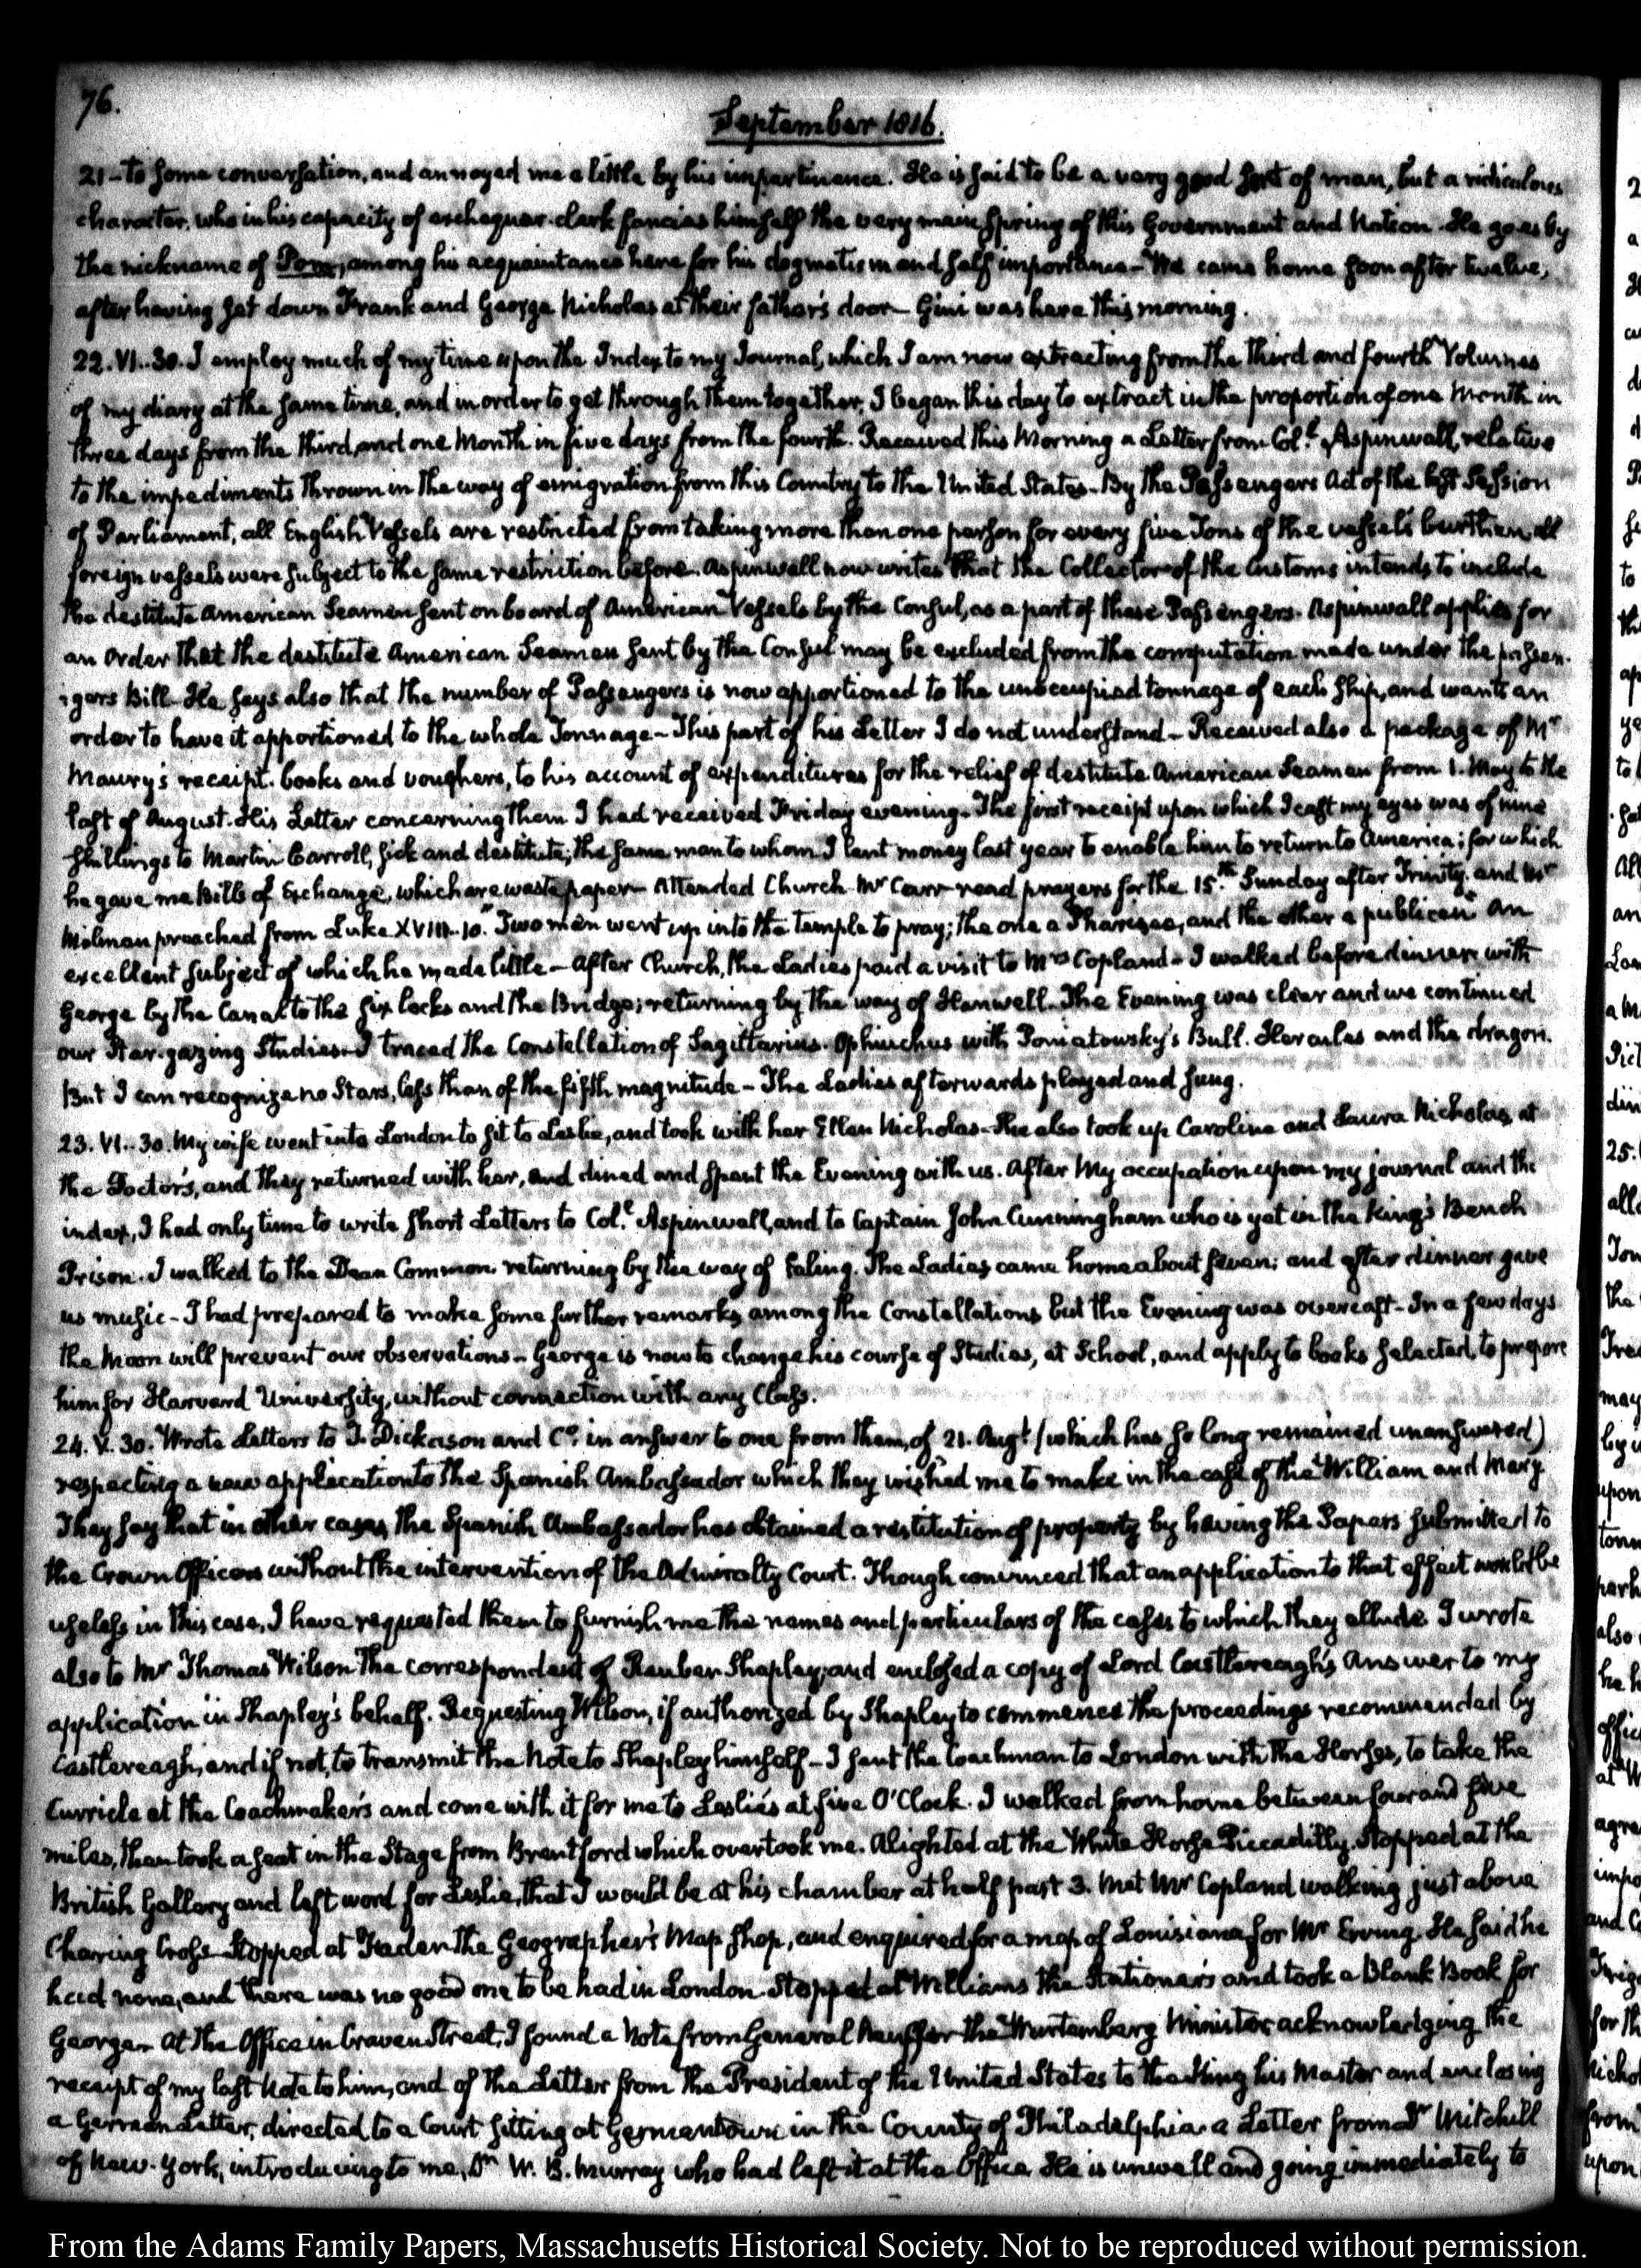 76.
September 1816.
21 - to some conversation, and annoyed me a little by his impertinence. He is said to be a very good sort of man, but a ridiculous
character, who in his capacity of exchequer-clerk fancies himself the very main spring of this Government and Nation. He goes by
the nickname of among his acquaintance here for his dogmatism and self importance - We came home soon after twelve,
after having set down Frank and George Nicholas at their father's door - Gini was here this morning.
22. VI..30. I employ much of my time upon the Index to my Journal, which I am now extracting from the third and fourth Volumes
of my diary at the same time, and in order to get through them together, I began this day to extract in the proportion of one Month in
three days from the third, and one Month in five days from the fourth. Received this Morning a Letter from Coll. Aspinwall, relative
to the impediments thrown in the way of emigration from this Country to the United States - By the Passengers Act of the last Session
of Parliament, all English Vessels are restricted from taking more than one person for every five Tons of the vessel's burthen, all
foreign vessels were subject to the same restriction before. Aspinwall now writes that the Collector of the Customs intends to include
the destitute American Seamen sent on board of American Vessels by the Consul, as a part of these Passengers. Aspinwall applies for
an Order that the destitute American Seamen sent by the Consul may be excluded from the computation made under the passen-
-gers Bill - He says also that the number of Passengers is now apportioned to the unoccupied tonnage of each Ship, and wants an
order to have it apportioned to the whole Tonnage - This part of his Letter I do not understand - Received also a package of Mr
Maury's receipt-books and vouchers, to his account of expenditures for the relief of destitute American Seamen from 1. May to the
last of August. His Letter concerning them I had received Friday evening - The first receipt upon which I cast my eyes was of nine
shillings to Martin Carroll, sick and destitute; the same man to whom I lent money last year to enable him to return to America; for which
he gave me Bills of Exchange, which are waste paper - Attended Church. Mr Carr read prayers for the 15th Sunday after Trinity, and Mr
Milman preached from Luke XVIII..10. "Two men went up into the temple to pray; the one a Pharisee, and the other a publican" An
excellent subject of which he made little - After Church, the Ladies paid a visit to Mrs Copland - I walked before dinner with
George by the Canal to the six locks and the Bridge; returning by the way of Hanwell. The Evening was clear and we continued
our Star-gazing Studies - I traced the Constellation of Sagittarius. Ophiuchus with Poniatowsky's Bull. Hercules and the dragon.
But I can recognize no Stars, less than of the fifth magnitude - The Ladies afterwards played and sung.
23. VI..30. My wife went into London to sit to Leslie, and took with her Ellen Nicholas. She also took up Caroline and Laura Nicholas, at
the Doctor's, and they returned with her, and dined and spent the Evening with us. After My occupation upon my journal and the
index, I had only time to write short Letters to Coll. Aspinwall, and to Captain John Cunningham who is yet in the King's Bench
Prison. I walked to the Dean Common returning by the way of Ealing. The Ladies came home about seven; and after dinner gave
us music - I had prepared to make some further remarks among the Constellations but the Evening was overcast - In a few days
the Moon will prevent our observations - George is now to change his course of Studies, at School, and apply to books selected, to prepare
him for Harvard University, without connection with any Class.
24. V. 30. Wrote Letters to J. Dickason and Co. in answer to one from them, of 21. Augt. (which has so long remained unanswered)
respecting a new application to the Spanish Ambassador which they wished me to make in the case of the William and Mary
They say that in other cases, the Spanish Ambassador has obtained a restitution of property by having the Papers submitted to
the Crown Officers without the intervention of the Admiralty Court. Though convinced that an application to that effect would be
useless in this case, I have requested them to furnish me the names and particulars of the cases to which they allude. I wrote
also to Mr Thomas Wilson the correspondent of Reuben Shapley; and enclosed a copy of Lord Castlereagh's Answer to my
application in Shapley's behalf. Requesting Wilson, if authorized by Shapley to commence the proceedings recommended by
Castlereagh, and if not, to transmit the Note to Shapley himself - I sent the Coachman to London with the Horses, to take the
Curricle at the Coachmaker's and come with it for me to Leslie's at five O'Clock. I walked from home between four and five
miles, then took a seat in the Stage from Brentford which overtook me. Alighted at the White Horse Piccadilly. Stopped at the
British Gallery and left word for Leslie, that I would be at his chamber at half past 3. Met Mr Copland walking just above
Charing Cross - Stopped at Faden the Geographer's Map shop, and enquired for a map of Louisiana for Mr Erving. He said he
had none, and there was no good one to be had in London. Stopped at Williams the Stationer's and took a Blank Book for
George - At the Office in Craven Street, I found a Note from General the Wurtemberg Minister acknowledging the
receipt of my last Note to him, and of the Letter from the President of the United States to the King his Master and enclosing
a German Letter, directed to a Court sitting at Germantown in the County of Philadelphia - a Letter from Dr Mitchill
of New-York, introducing to me, Dr W. B. Murray who had left it at the Office. He is unwell and going immediately to
From the Adams Family Papers, Massachusetts Historical Society. Not to be reproduced without permission.